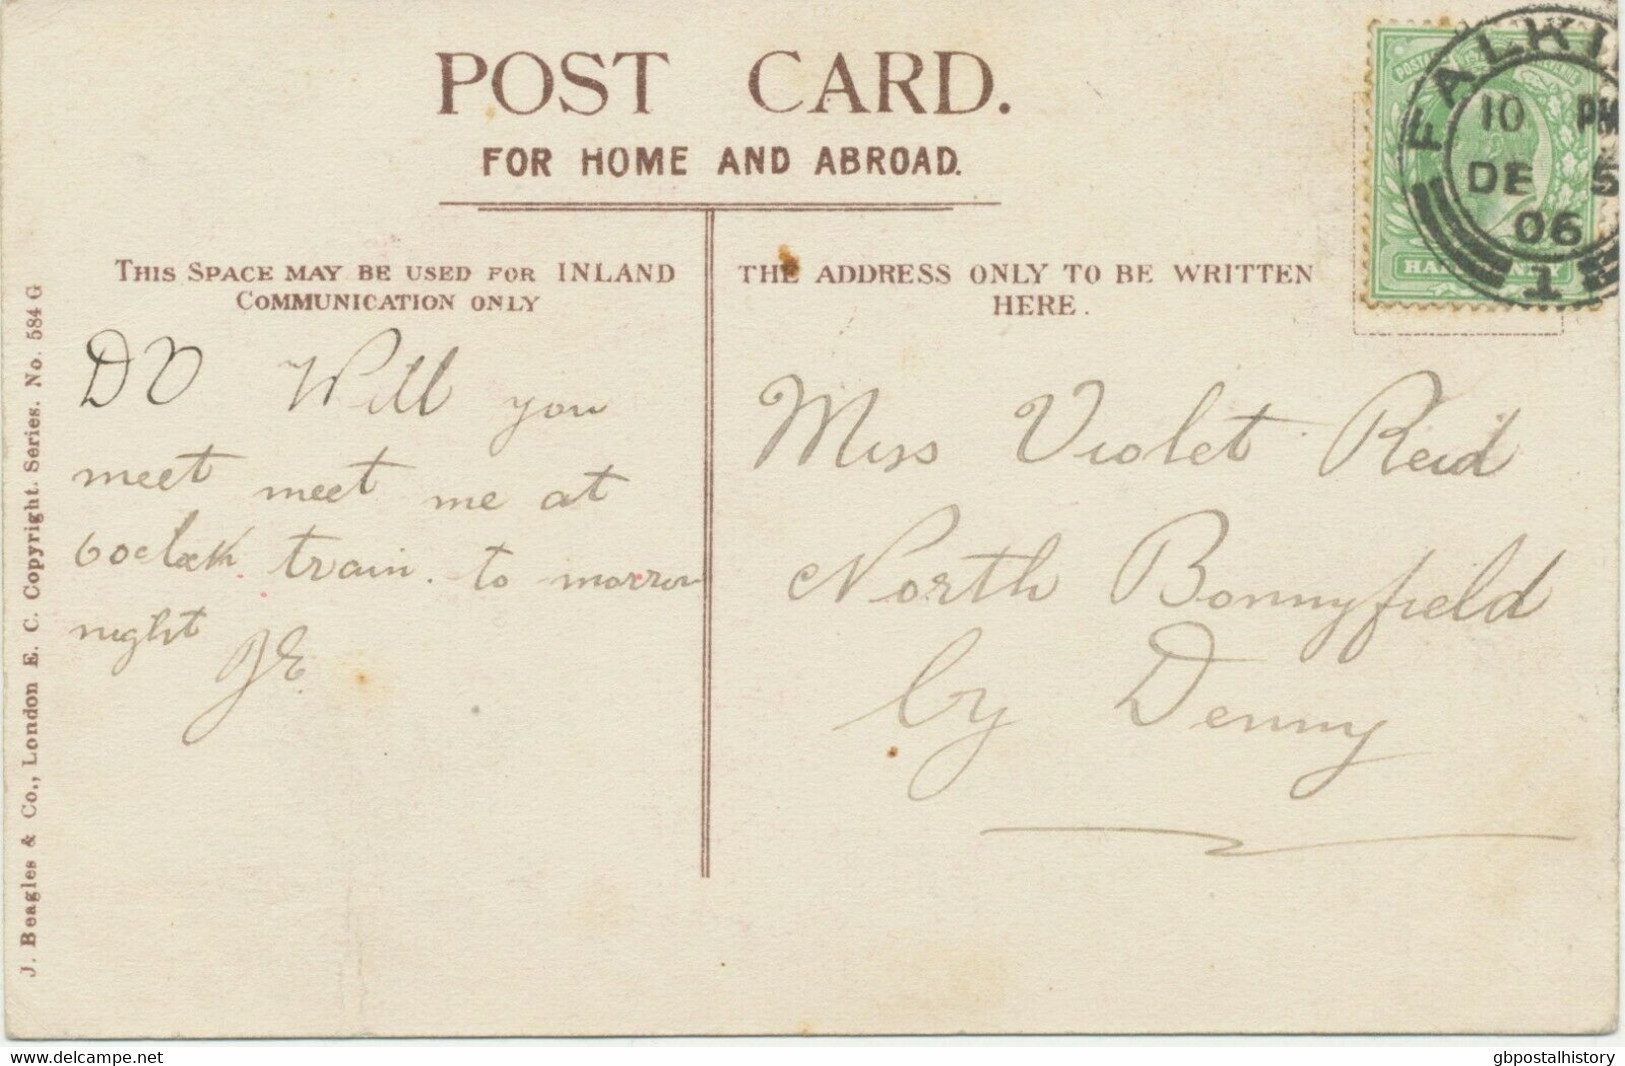 POST CARD.
FOR HOME AND ABROAD.
THIS SPACE MAY BE USED FOR INLAND
COMMUNICATION ONLY
THE ADDRESS ONLY TO BE WRITTEN
HERE.
POSTAGE REVENUE
HALFPENNY
FALKIR
10 PM
DE 5
06
1
DV Will you
meet meet me at
6 oclock train. to morrow
night
JE
Miss Violet Reid
North Bonnyfield
by Denny
J. Beagles & Co., London E. C. Copyright. Series. No. 584 G
www.delcampe.net
gbpostalhistory